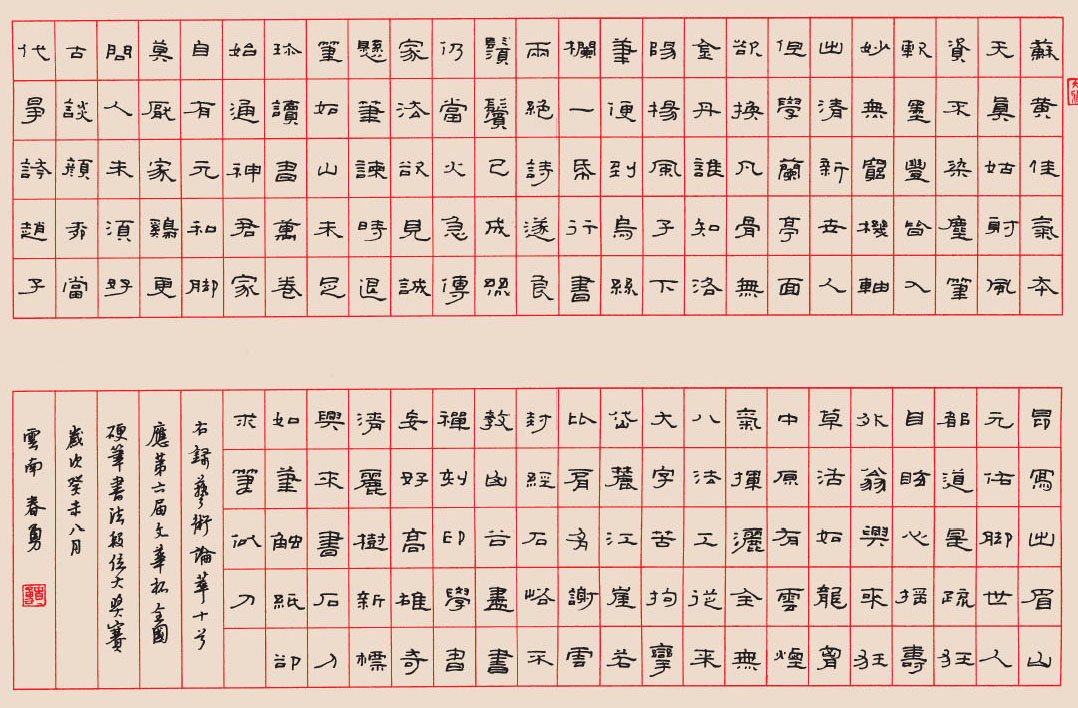 蘇黄佳氣本
天真姑射風
資不染塵筆
軟墨豐皆入
妙無窮機軸
出清新世人
但學蘭亭面
欲換凡骨無
金丹誰知洛
陽楊風子下
筆便到烏絲
欄一昏行書
兩絕詩遂良
鬚鬢已成絲
仍當火急傳
家法欲見誠
懸筆諫時退
筆如山未足
珎讀書萬卷
始通神君家
自有元和脚
莫厭家鷄更
問人未須好
古談顏柳當
代爭誇趙子
昂寫出眉山
元佑脚世人
都道是疏狂
自睹心摇壽
外翁興來狂
草活如龍胷
中原有雲煙
氣揮灑全無
八法工從來
大字苦拘攣
岱麓江崖若
比肩多謝雲
封經石峪不
教函谷盡書
禪刻印學書
妄好高雄奇
濟麗樹新標
興來書石入
如筆觸紙卻
求筆似刀
右録藝術論華十首
應第六届文華杯全國
硬筆書法段位大奬賽
歲次癸未八月
雲南 春勇